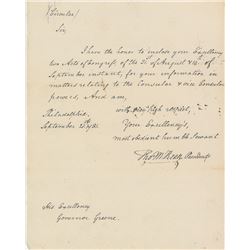 (Circular)
Sir,
I have the honor to inclose your Excellency
two Acts of Congress of the 31 of August &
September instant, for your information in
matters relating to the Consular & vice Consular
powers, And am,
with very high respect,
Your Excellency's
Philadelphia
September
most obedient humble Servant
Tho M:Kean President
His Excellency
Governor Greene.